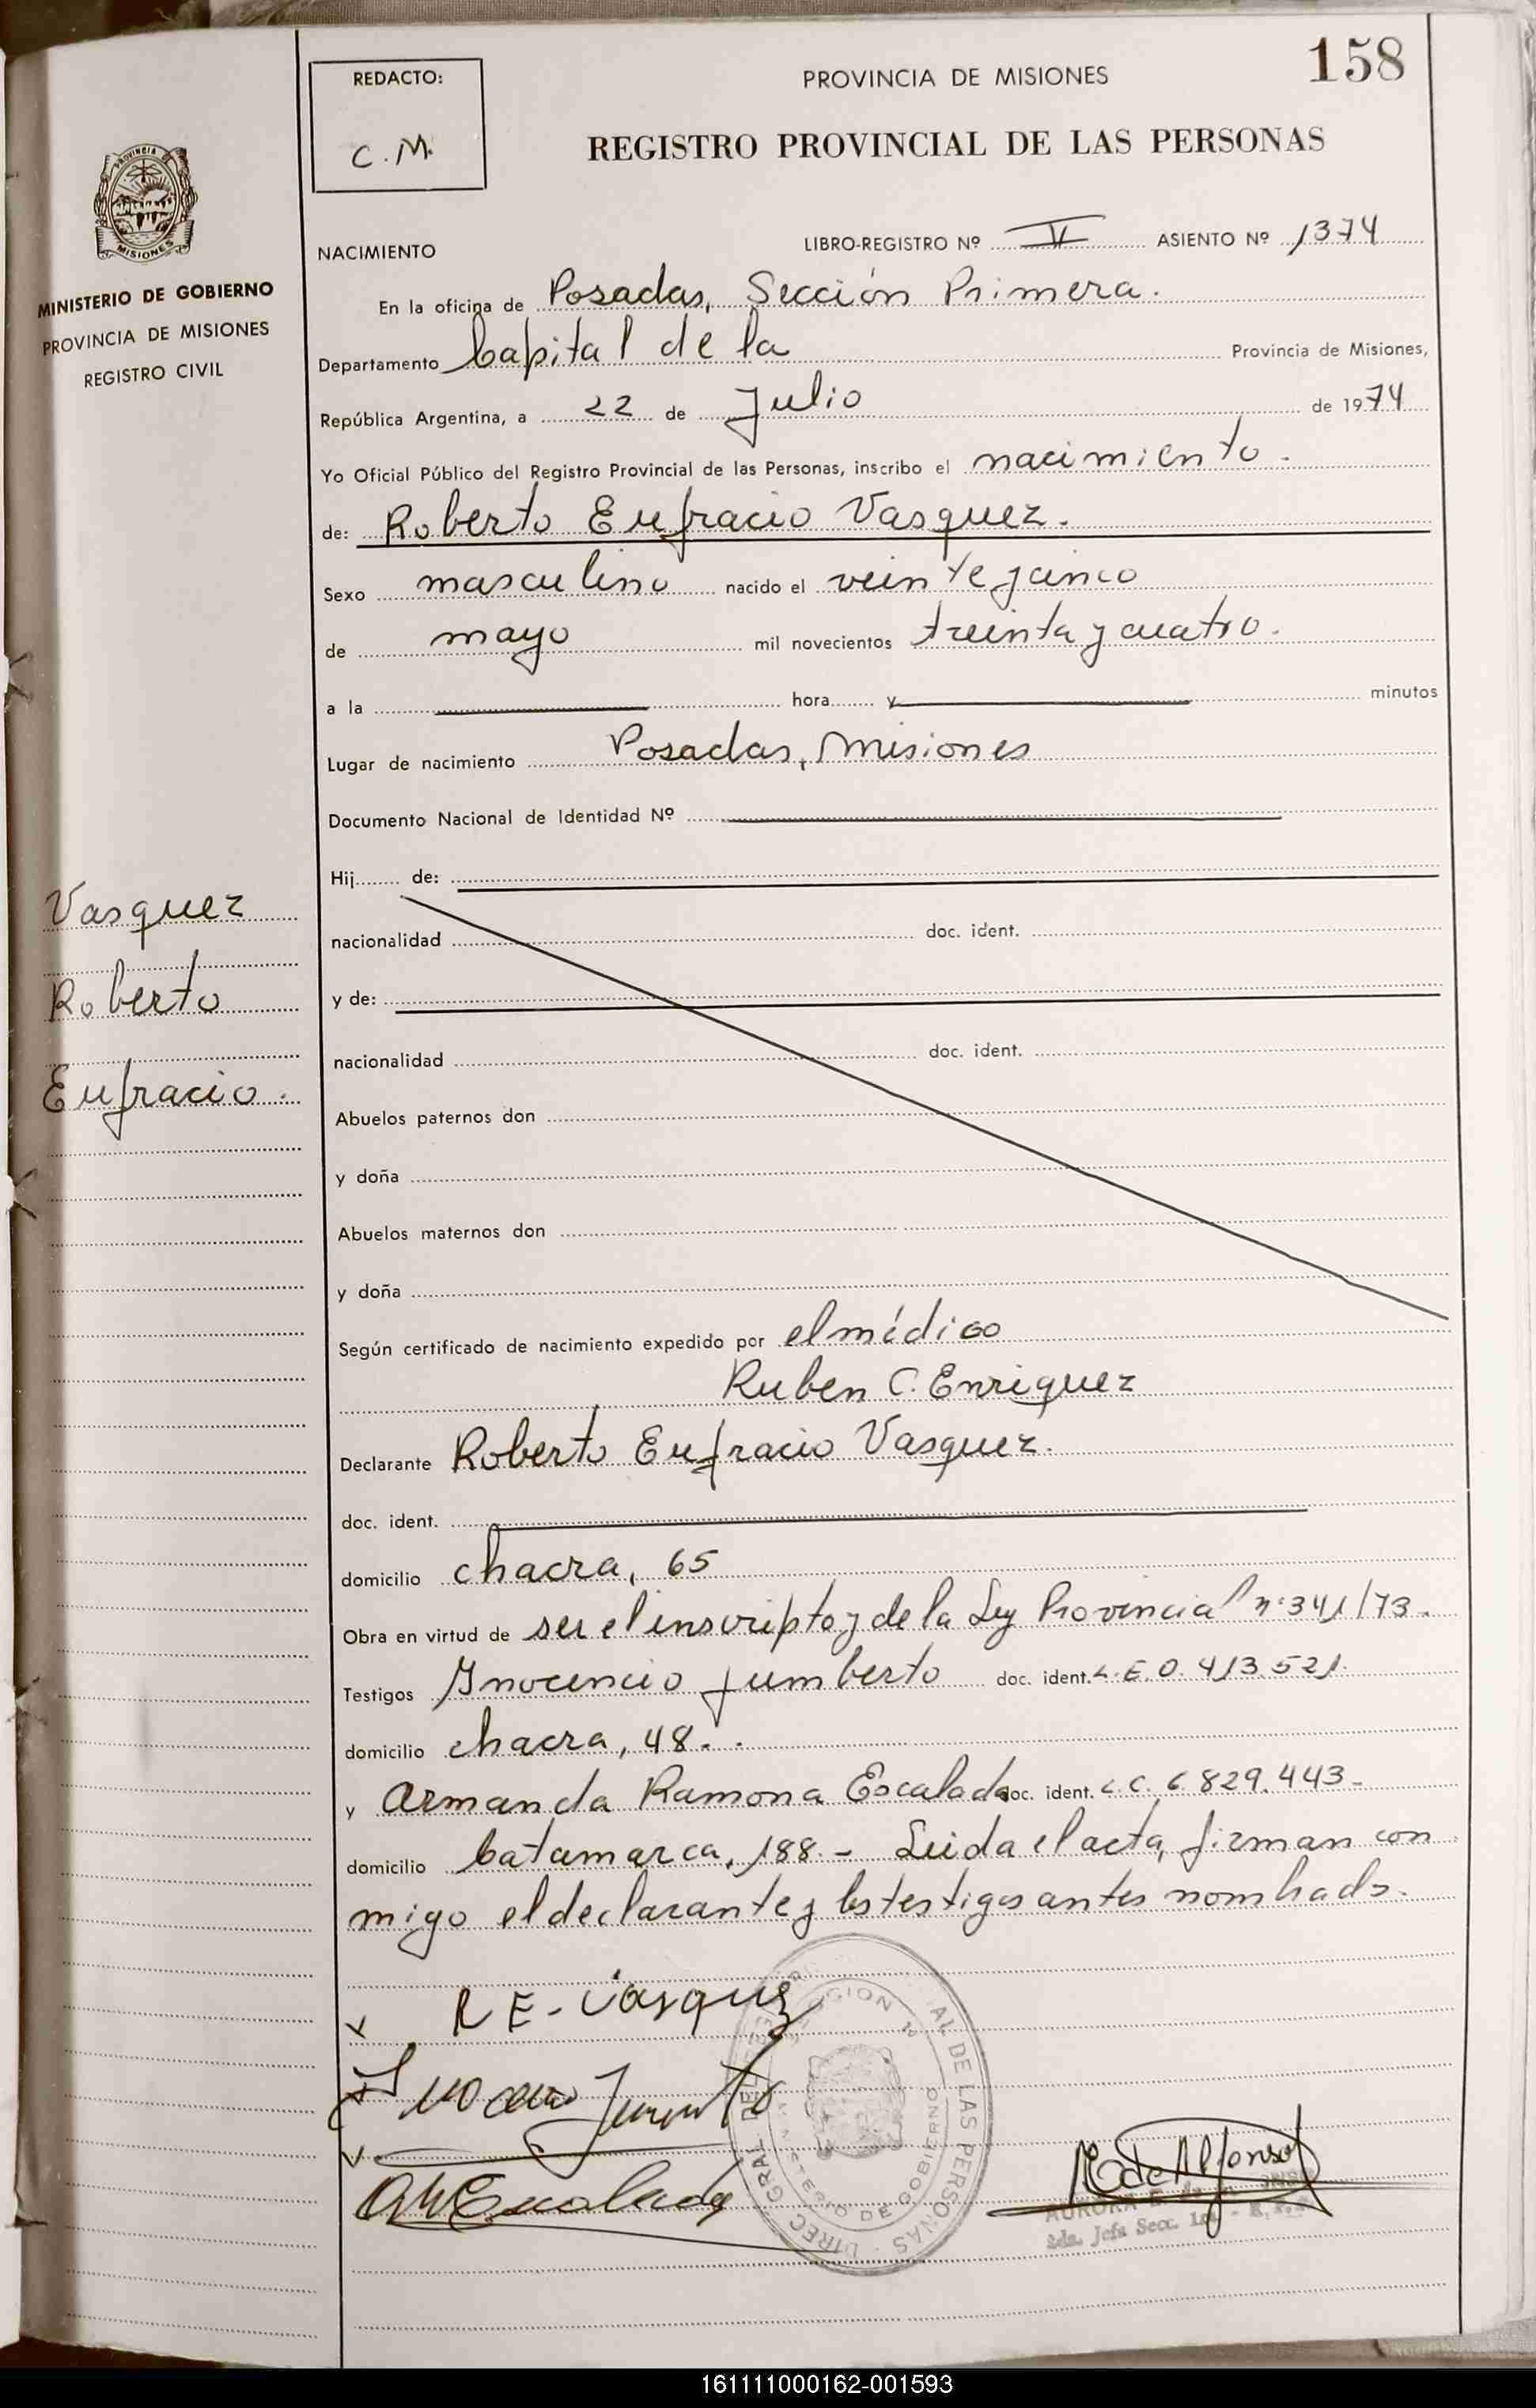 158
REDACTO:
C.M.
PROVINCIA DE MISIONES
REGISTRO PROVINCIAL DE LAS PERSONAS
PROVINCIA
MISIONES
MINISTERIO DE GOBIERNO
PROVINCIA DE MISIONES
REGISTRO CIVIL
NACIMIENTO
LIBRO-REGISTRO Nº ASIENTO Nº 1374
En la oficina de Posadas, Sección Primera.
Departamento Capital de la Provincia de Misiones,
República Argentina, a 22 de Julio de 1974
Yo Oficial Público del Registro Provincial de las Personas, inscribo el nacimiento.
de: Roberto Eufracio Vasquez.
Sexo masculino nacido el veinte y cinco
de mayo mil novecientos treinta y cuatro.
a la hora y minutos
Lugar de nacimiento Posadas, Misiones
Documento Nacional de Identidad Nº
Hij de:
nacionalidad doc. ident.
y de:
nacionalidad doc. ident.
Abuelos paternos don
y doña
Abuelos maternos don
y doña
Vasquez
Roberto
Eufracio.
Según certificado de nacimiento expedido por el médico
Ruben C. Enriquez
Declarante Roberto Eufracio Vasquez.
doc. ident.
domicilio chacra, 65
Obra en virtud de ser el inscripto y de la Ley Provincial nº 341/73.
Testigos Inocencio Jumberto doc. ident. L.E. 0.413.521.
domicilio chacra, 48.
y Armanda Ramona Escalada doc. ident. L.C. 6.829.443-
domicilio Catamarca, 188.- Leida el acta, firman con
migo el declarante y los testigos antes nombrado.
R E - Vasquez
DIREC. GRAL. DEL AL DE LAS PERSONAS
DE GOBIERNO
E de Alfonso
AURORA E.
2da. Jefa Secc.
161111000162-001593